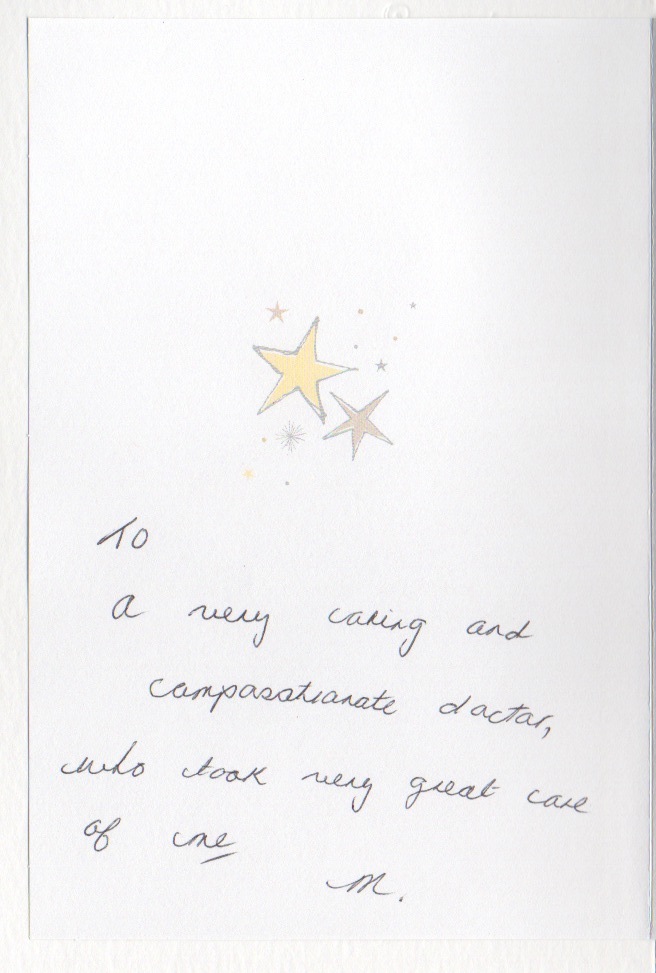 To
a very caring and
compasstionate doctor,
who took very great care
of me
M.